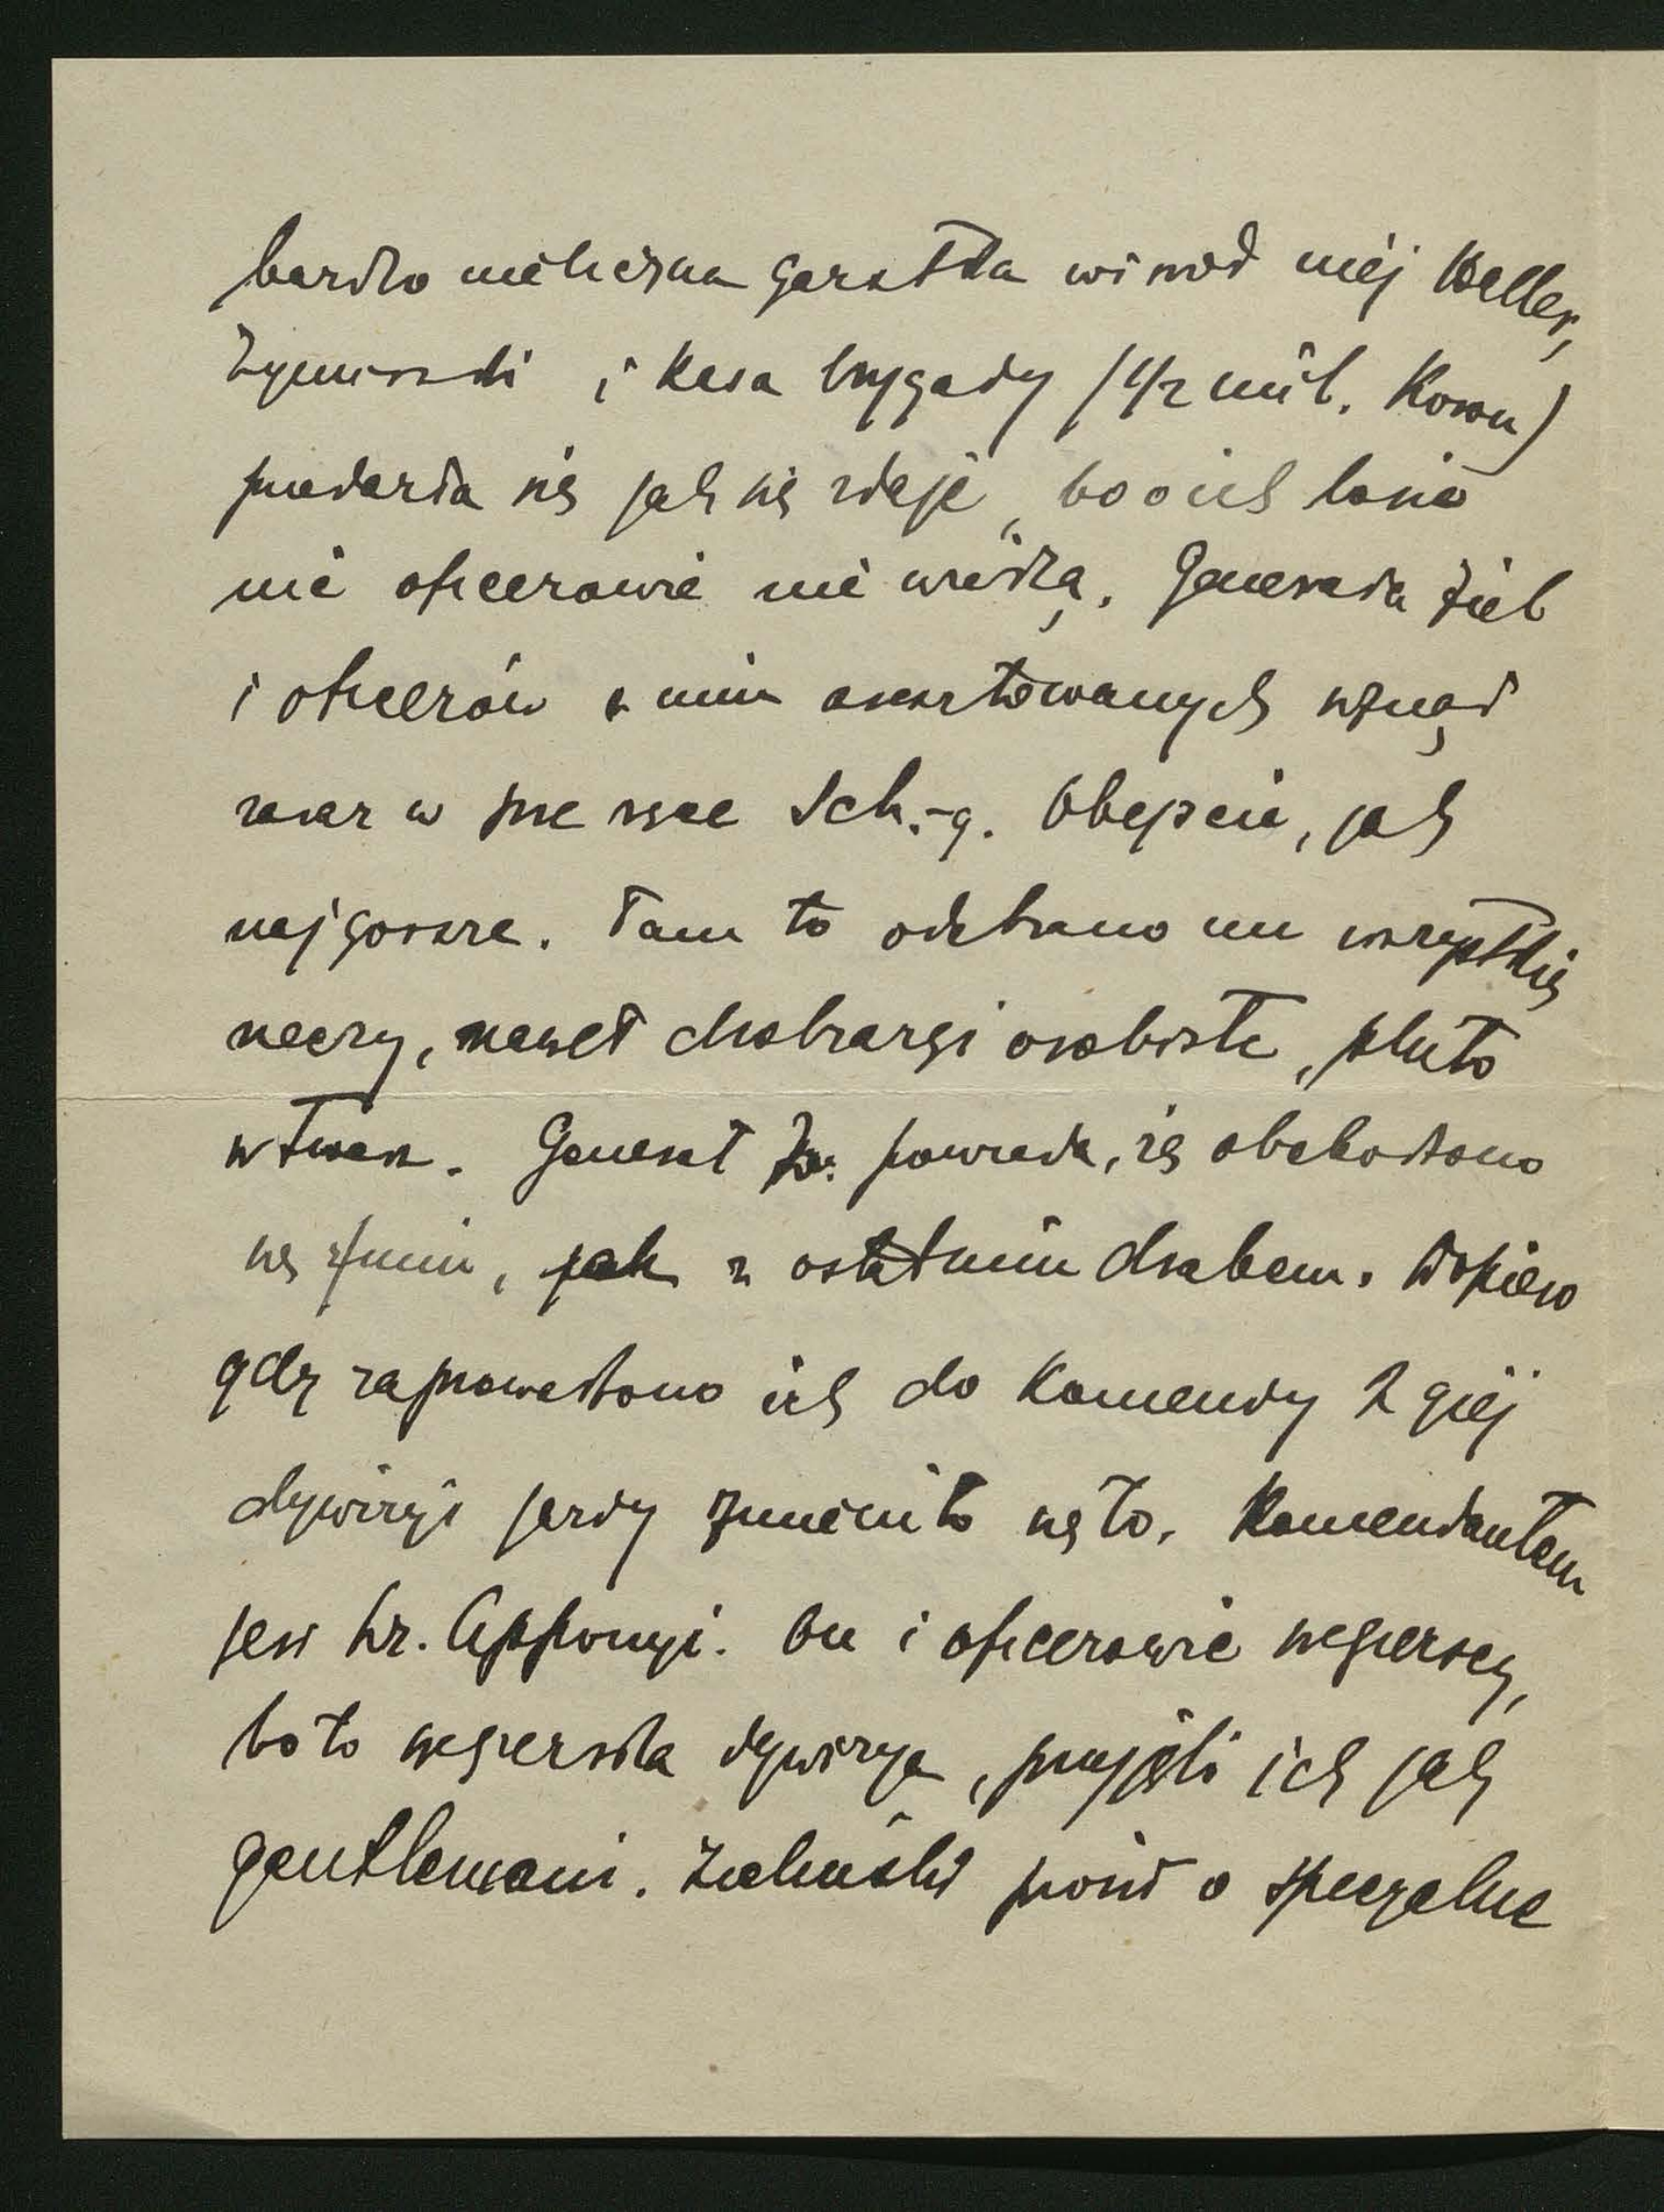 bardzo nieliczna garstka wśród niej Haller,
Żymierski i kasa brygady (1/2 mil. Koron)
przedarła się jak się zdaje, bo o ich losie
nic oficerowie nie wiedzą. Generała Ziel
i oficerów z nim aresztowanych wziął
zaraz w Sch.-g. Obejście, jak
najgorsze. Tam to odebrano mu wszystkie
rzeczy, nawet drobiazgi osobiste, pluto
w twarz. Generał Z. powiada, że obchodzono
się z nimi, jak z ostatnim drabem. Dopiero
gdy zaprowadzono ich do Komendy 2 giej
dywizyi jazdy zmieniło się to. Komendantem
jest hr. Apponyi. On i oficerowie węgierscy,
bo to węgierska dywizya, przyjęli ich jak
gentlemani. Zieliński prosił o specyalne